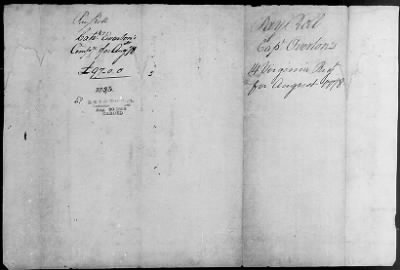 Pay Roll
Capt. Overton's
Comp.y for Aug.t 78
£92.0.0
Pay Roll
Cap.t Overton's
Virginia Reg.t
for August 1778